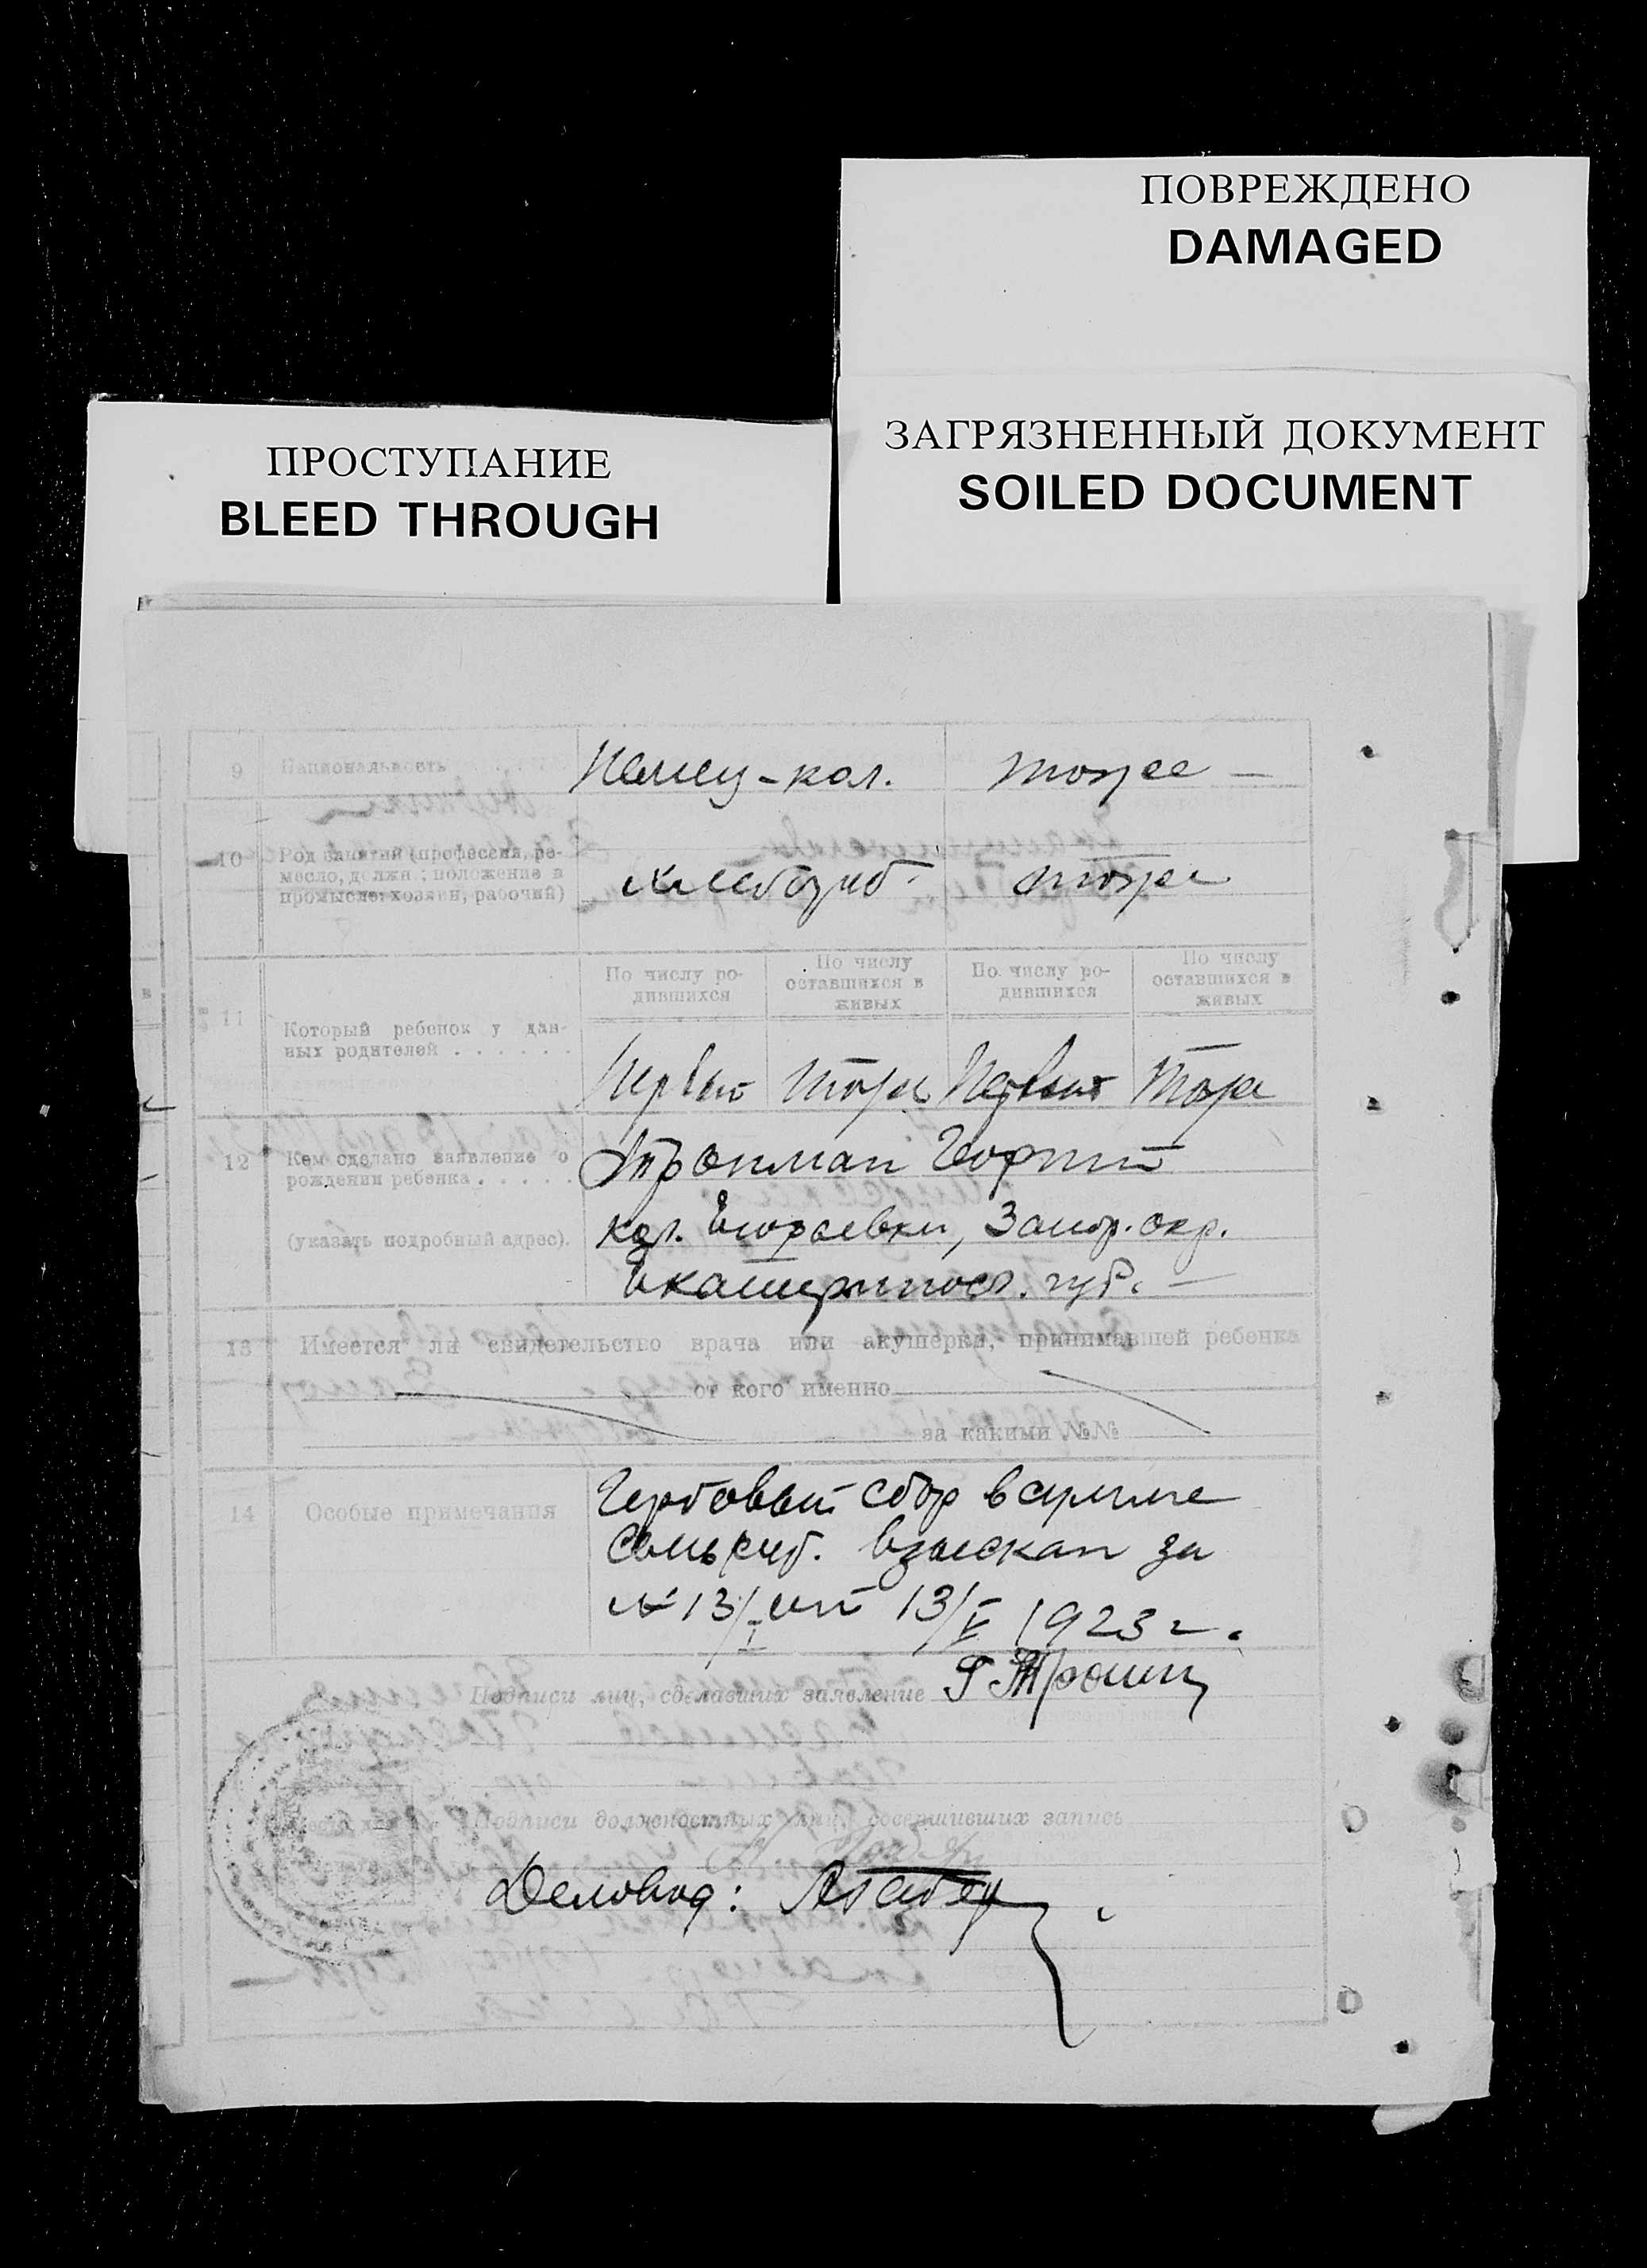 ПОВРЕЖДЕНО
DAMAGED
ЗАГРЯЗНЕННЫЙ ДОКУМЕНТ
SOILED DOCUMENT
ПРОСТУПАНИЕ
BLEED THROUGH
9 Национальность Немец-кол. тоже —
10 Род занятий (професеия, ре-
месло, должн.; положение в
промысле: хозяин, рабочий)
хлебороб. тоже
По числу ро-
дившихся
По числу
оставшихся в
живых
По числу ро-
дившихся
По числу
оставшихся в
живых
11 Который ребенок у дан-
ных родителей . . . . . .
Первый тоже Первый тоже
12 Кем сделано заявление о
рождении ребенка . . . . .
Георгий
(указать подробный адрес).
кол. Егорьевки, Запор. окр.
Екатериносл. губ. —
13 Имеется ли свидетельство врача или акушерки, принимавшей ребенка
от кого именно
за какими №№
14 Особые примечания
Гербовый сбор в сумме
семь руб. взыскан за
№ 13/I от 13/V 1923 г.
Подписи лиц, сделавших заявление
Подписи должностных лиц, совершивших запись
Деловод: